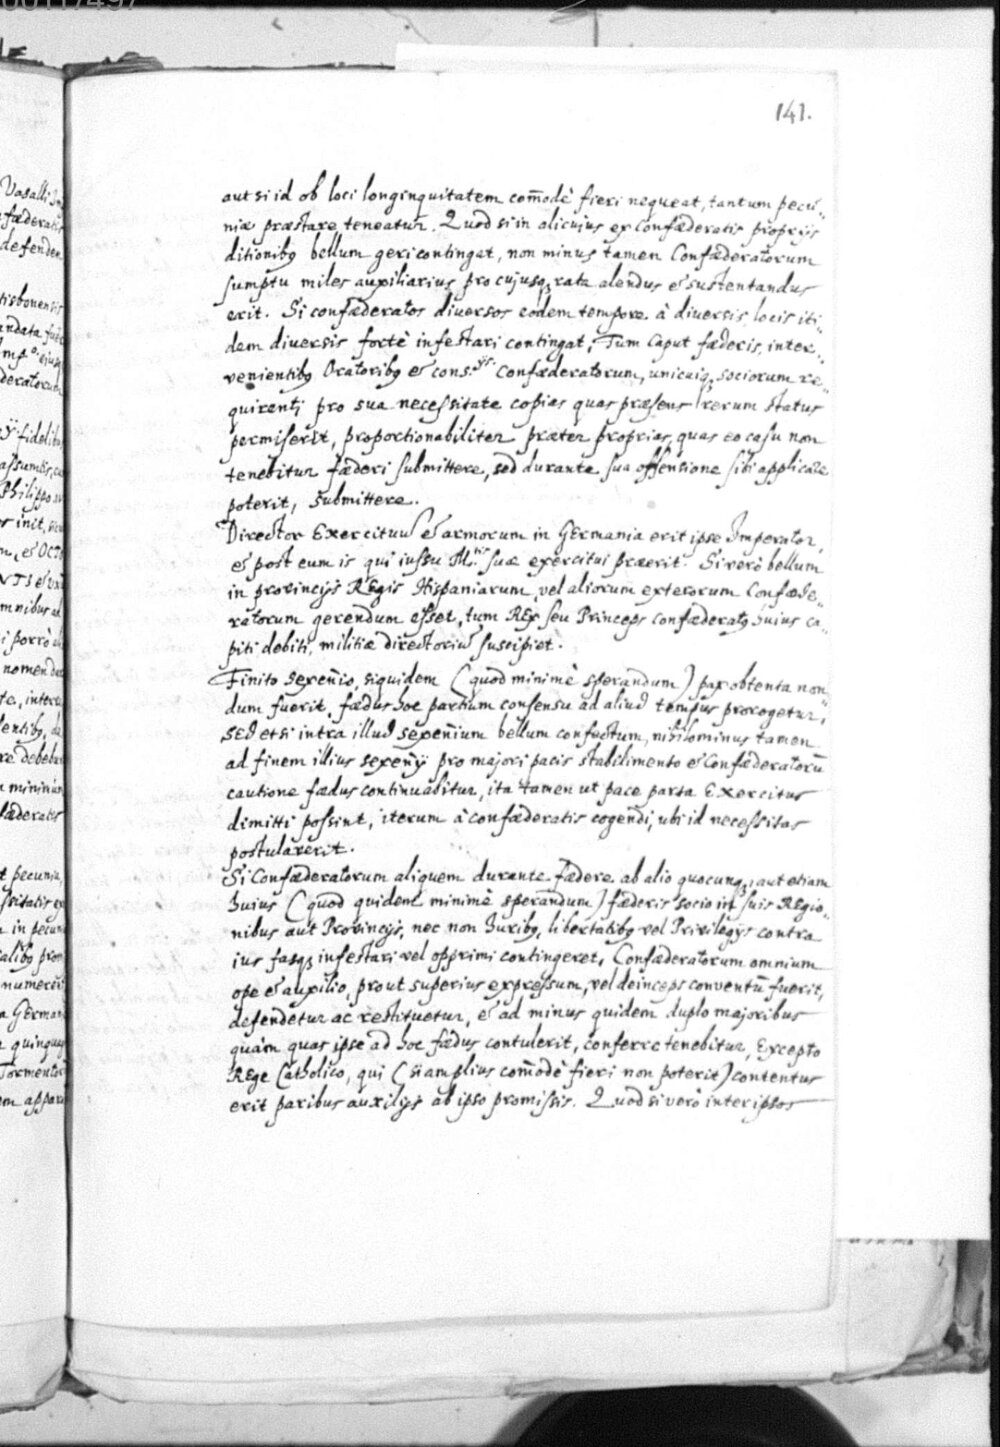 141.
aut si id ob loci longinquitatem com̄odè fieri nequeat, tantum pecu-
niæ præstare teneatur. Quod si in alicujus ex Confœderatis proprijs
ditionibꝯ bellum geri contingat, non minus tamen Confœderatorum
sumptu miles auxiliarius pro cujusq; rata alendus & sustentandus
erit. Si confœderatos diversos eodem tempore à diversis locis iti-
dem diversis fortè infestari contingat, Tum Caput fœderis, inter-
venientibꝯ Oratoribꝯ & cons.ijs Confœderatorum, unicuiq; sociorum re-
quirenti pro sua necessitate copias quas præsens rerum status
permiserit, proportionabiliter præter proprias, quas eo casu non
tenebitur fœderi submittere, sed durante sua offensione sibi applicare
poterit, submittere.
Director Exercituū & armorum in Germania erit ipse Imperator,
& post eum is qui iussu M.tis suæ exercitui præerit. Si verò bellum
in provincijs Regis Hispaniarum, vel aliorum exterorum Confœde-
ratorum gerendum esset, tum Rex seu Princeps confœderatꝯ huius ca-
piti debiti, militiæ directoriū suscipiet.
Finito sexen̄io, siquidem (quod minimè sperandum) pax obtenta non
dum fuerit, fœdus hoc partium consensu ad aliud tempus prorogetur,
sed etsi intra illud sexen̄ium bellum confectum, nihilominus tamen
ad finem illius sexen̄ij pro majori pacis stabilimento & Confœderatorū
cautione fœdus continuabitur, ita tamen ut pace parta Exercitus
dimitti possint, iterum à confœderatis cogendi, ubi id necessitas
postularerit.
Si Confœderatorum aliquem durante fœdere ab alio quocunq;, aut etiam
huius (quod quidem minimè sperandum) fœderis socio in suis Regio-
nibus aut Provincijs, nec non Juribꝯ, libertatibꝯ vel Privilegijs contra
ius fasq; infestari vel opprimi contingeret, Confœderatorum omnium
ope & auxilio, prout superius expressum, vel deinceps conventū fuerit,
defendetur ac restituetur, & ad minus quidem duplo majoribus
quàm quas ipse ad hoc fœdus contulerit, conferre tenebitur, Excepto
Rege Catholico, qui (si amplius com̄odè fieri non poterit) contentus
erit paribus auxilijs ab ipso promissis. Quod si verò inter ipsos